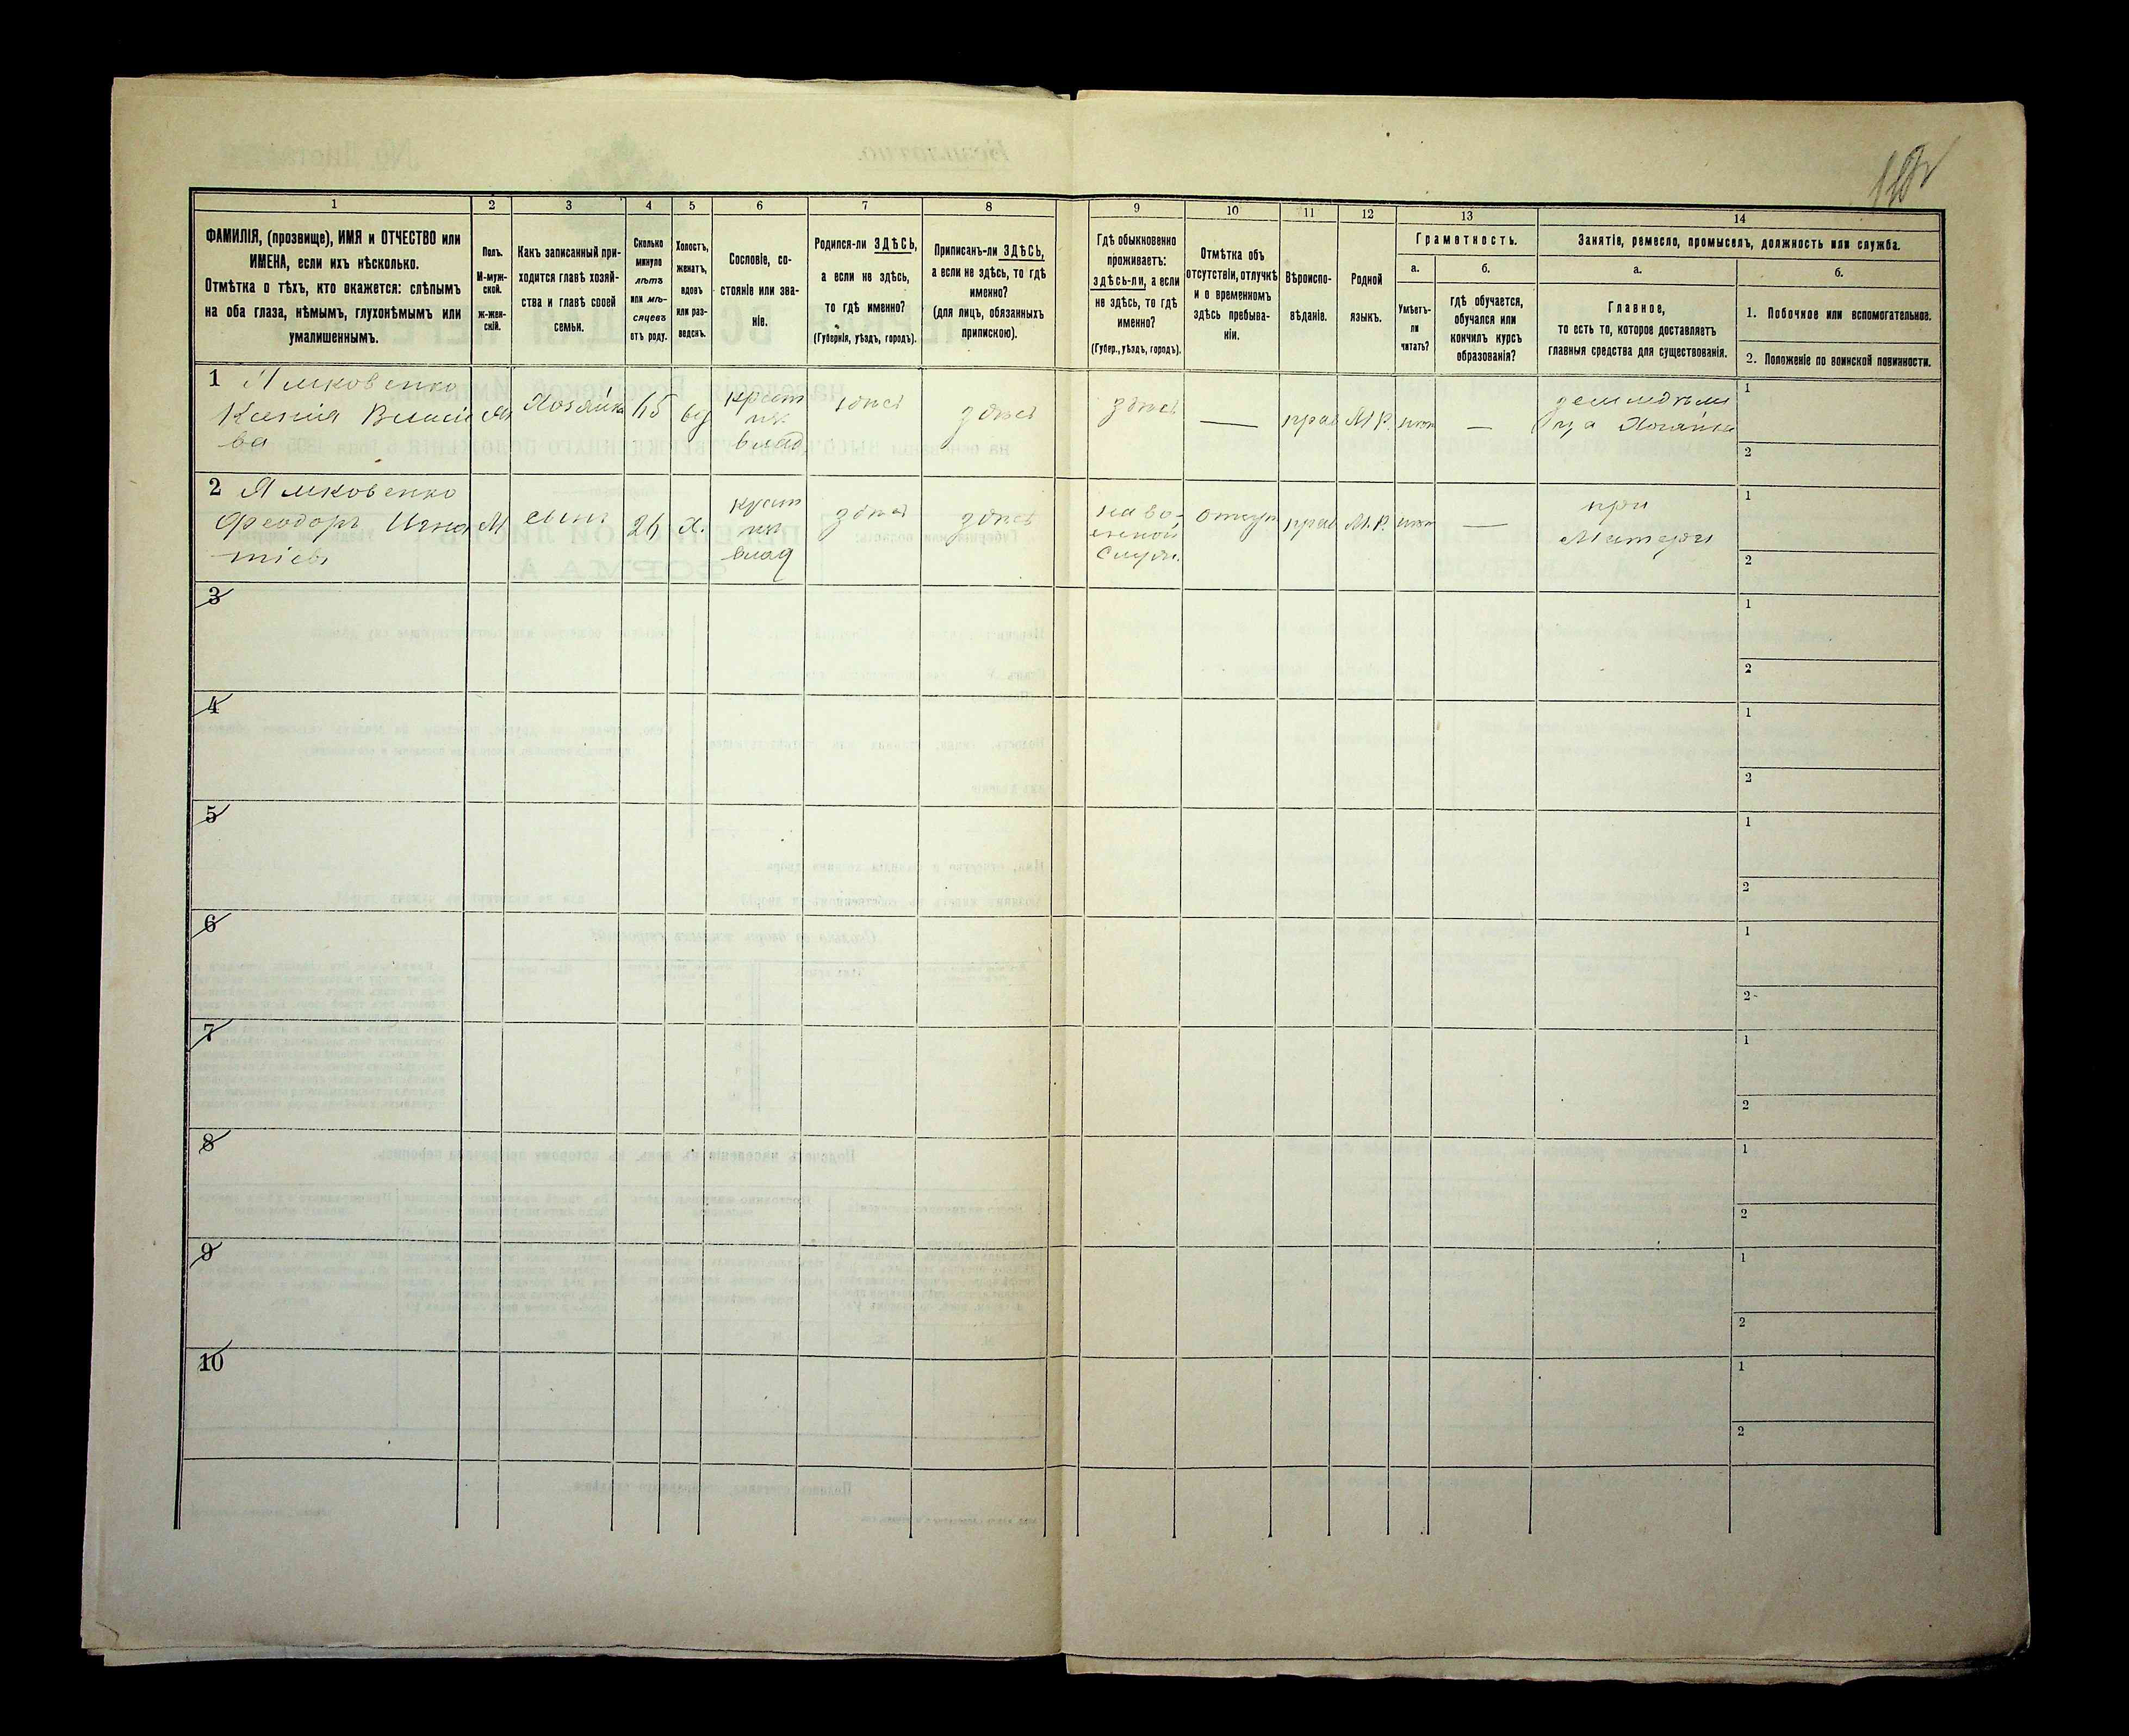 1 2 3 4 5 6 7 8 9 10 11 12 13 14
ФАМИЛІЯ, (прозвище), ИМЯ и ОТЧЕСТВО или
ИМЕНА, если ихъ нѣсколько.
Отмѣтка о тѣхъ, кто окажется: слѣпымъ
на оба глаза, нѣмымъ, глухонѣмымъ или
умалишеннымъ.
Полъ.
М-муж-
ской.
ж-жен-
скій.
Какъ записанный при-
ходится главѣ хозяй-
ства и главѣ своей
семьи.
Сколько
минуло
лѣтъ
или мѣ-
сяцевъ
отъ роду.
Холостъ,
женатъ,
вдовъ
или раз-
веденъ.
Сословіе, со-
стояніе или зва-
ніе.
Родился-ли ЗДѢСЬ,
а если не здѣсь,
то гдѣ именно?
(Губернія, уѣздъ, городъ).
Приписанъ-ли ЗДѢСЬ,
а если не здѣсь, то гдѣ
именно?
(для лицъ, обязанныхъ
припискою).
Гдѣ обыкновенно
проживаетъ:
здѣсь-ли, а если
не здѣсь, то гдѣ
именно?
(Губер., уѣздъ, городъ).
Отмѣтка объ
отсутствіи, отлучкѣ
и о временномъ
здѣсь пребыва-
ніи.
Вѣроиспо-
вѣданіе.
Родной
языкъ.
Грамотность.
а.
Умѣетъ-
ли
читать?
б.
гдѣ обучается,
обучался или
кончилъ курсъ
образованія?
Занятіе, ремесло, промыселъ, должность или служба.
а.
Главное,
то есть то, которое доставляетъ
главныя средства для существованія.
б.
1. Побочное или вспомогательное.
2. Положеніе по воинской повинности.
1 Ямковенко
Ксенія
ва
Хозяйка
45
вд
крест
влад
здѣсь
здѣсь
здѣсь
—
прав
М.Р.
нѣт
—
Хозяйка
1
2
2 Ямковенко
Феодоръ Игна
тіевъ
М
сынъ
26
х.
крест
влад
здѣсь
здѣсь
на во-
енной
Служ.
отсут
прав
М.Р.
нѣт
—
при
Матери
1
2
3
1
2
4
1
2
5
1
2
6
1
2
7
1
2
8
1
2
9
1
2
10
1
2